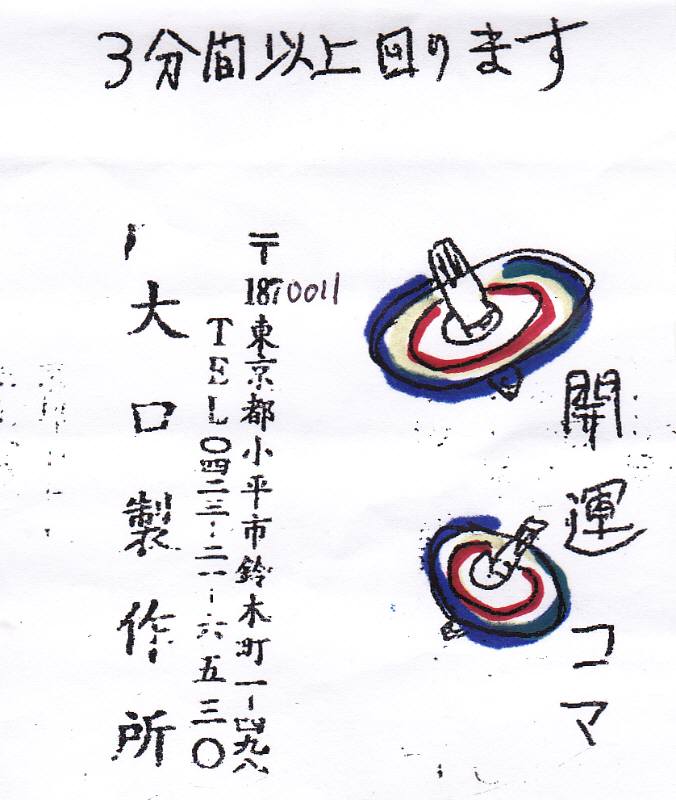 3分間以上回ります
開運コマ
〒1870011
東京都小平市鈴木町一-四九八
TEL〇四二三-二一-六五三〇
大口製作所